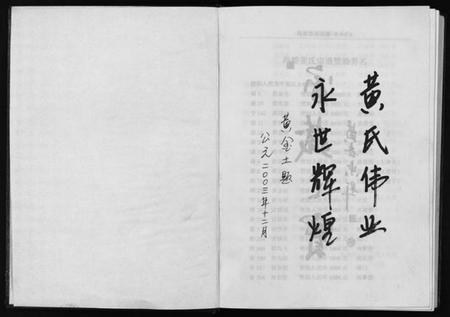 黄氏伟业
永世辉煌
黄金土题
公元二〇〇三年十二月